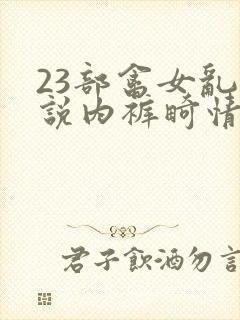 23部畜女乱
說内裤畸情
君子飲酒勿言